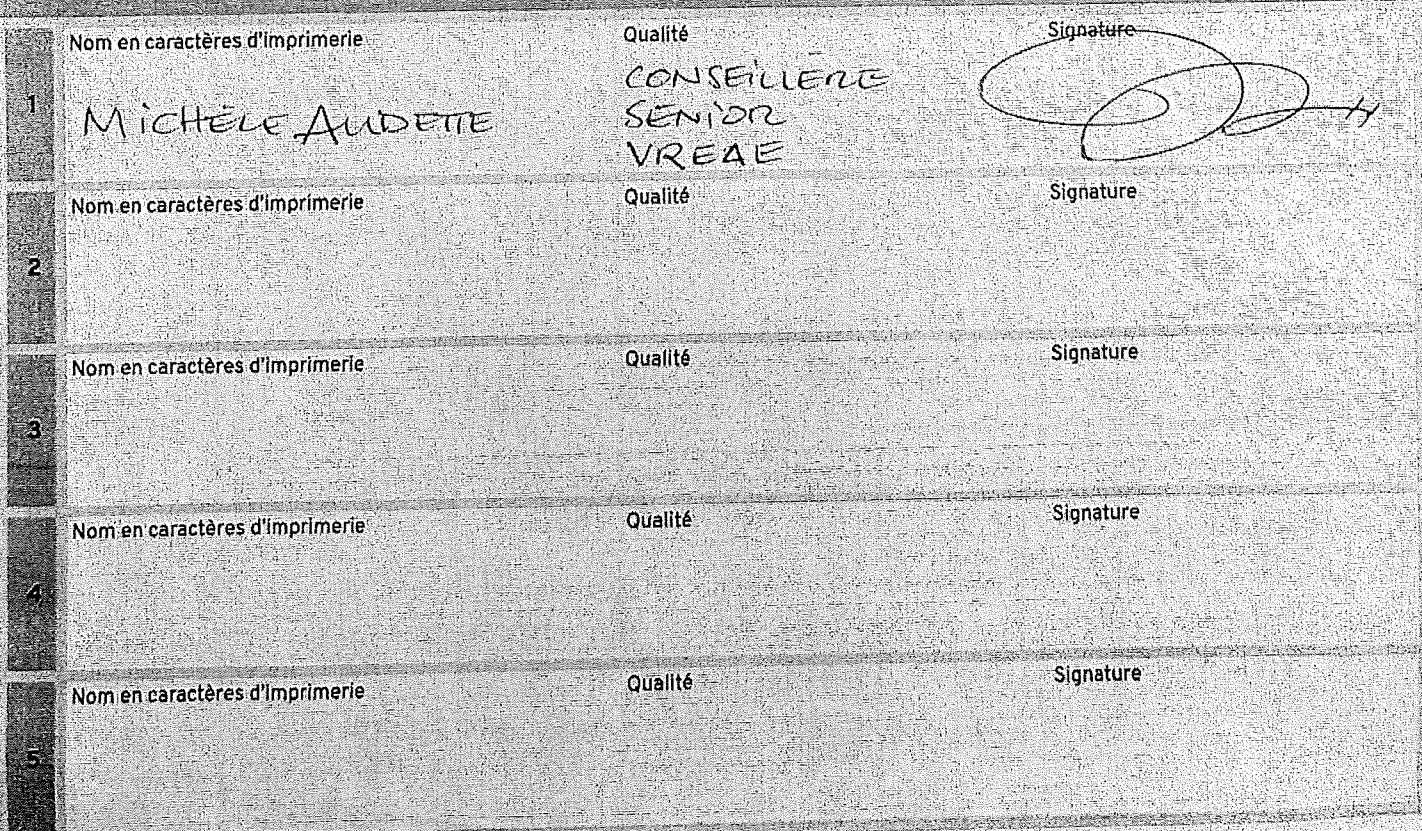 Nom en caractères d'imprimerie Qualité Signature
1 MiCHÈLE AUDETTE CONSEiLLERE
SENiOR
VREAE
Nom en caractères d'imprimerie Qualité Signature
2
Nom en caractères d'imprimerie Qualité Signature
3
Nom en caractères d'imprimerie Qualité Signature
4
Nom en caractères d'imprimerie Qualité Signature
5